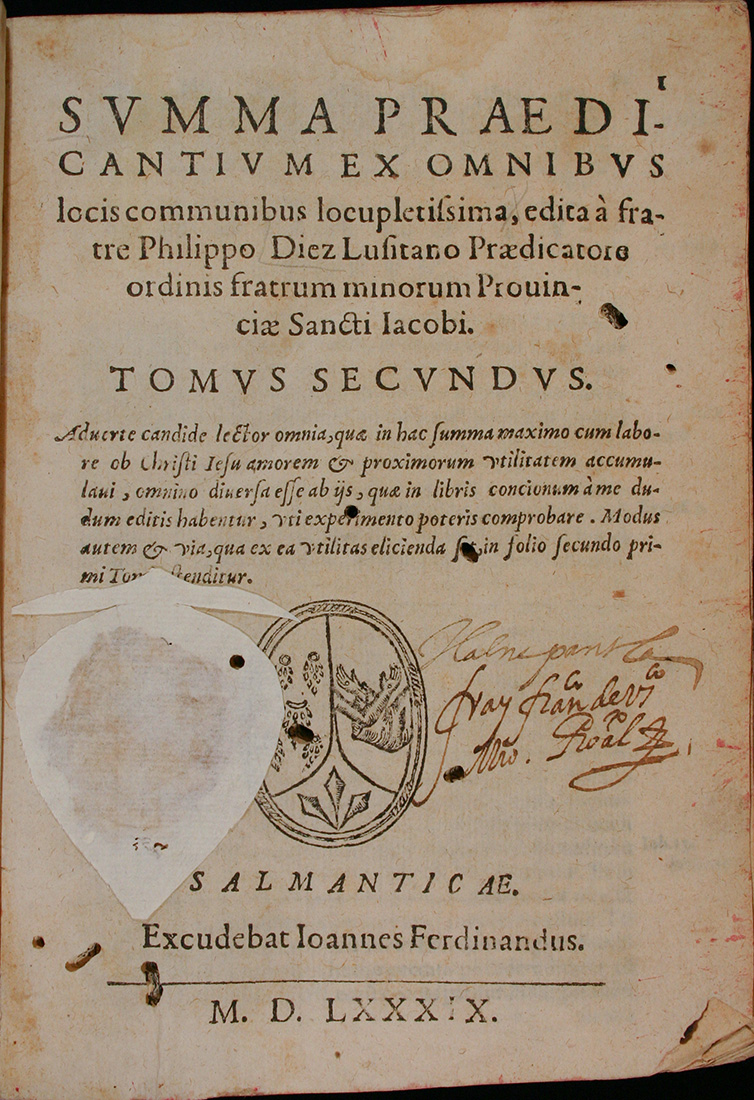 1
SVMMA PRAEDI-
CANTIVM EX OMNIBVS
locis communibus locupletiſsima, edita à fra-
tre Philippo Diez Luſitano Prædicatore
ordinis fratrum minorum Prouin-
ciæ Sancti Iacobi.
TOMVS SECVNDVS.
Aduerte candide lector omnia, quæ in hac ſumma maximo cum labo-
re ob Chriſti Ieſu amorem & proximorum vtilitatem accumu-
laui, omnino diuerſa eſſe ab ijs, quæ in libris concionum à me du-
dum editis habentur, vti experimento poteris comprobare. Modus
autem & via, qua ex ea vtilitas elicienda ſit, in folio ſecundo pri-
mi ſtenditur.
fray fran de
SALMANTICAE.
Excudebat Ioannes Ferdinandus.
M. D. LXXXIX.